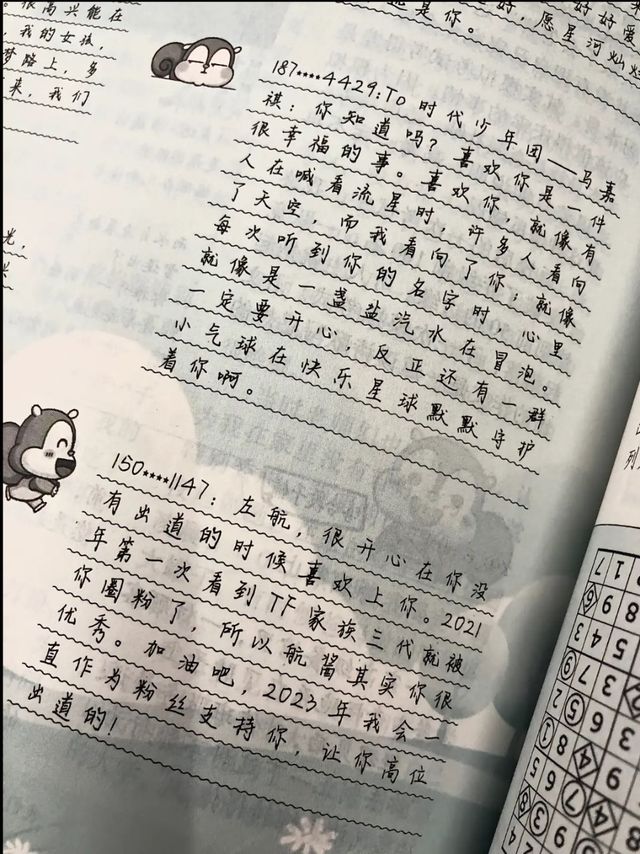 很高兴能在
，我的女孩，
梦路上，多
来，我们
是你。
好，愿星河灿
187****4429：To 时代少年团——马嘉
祺：你知道吗？喜欢你是一件
很幸福的事。喜欢你，就像有
人在喊看流星时，许多人看向
了天空，而我看向了你；就像
每次听到你的名字时，心里
就像是一盏盐汽水在冒泡。
一定要开心，反正还有一群
小气球在快乐星球默默守护
着你啊。
光，
150****1147：左航，很开心在你没
有出道的时候喜欢上你。2021
年第一次看到TF家族三代就被
你圈粉了，所以航酱其实你很
优秀。加油吧，2023年我会一
直作为粉丝支持你，让你高位
出道的！
列